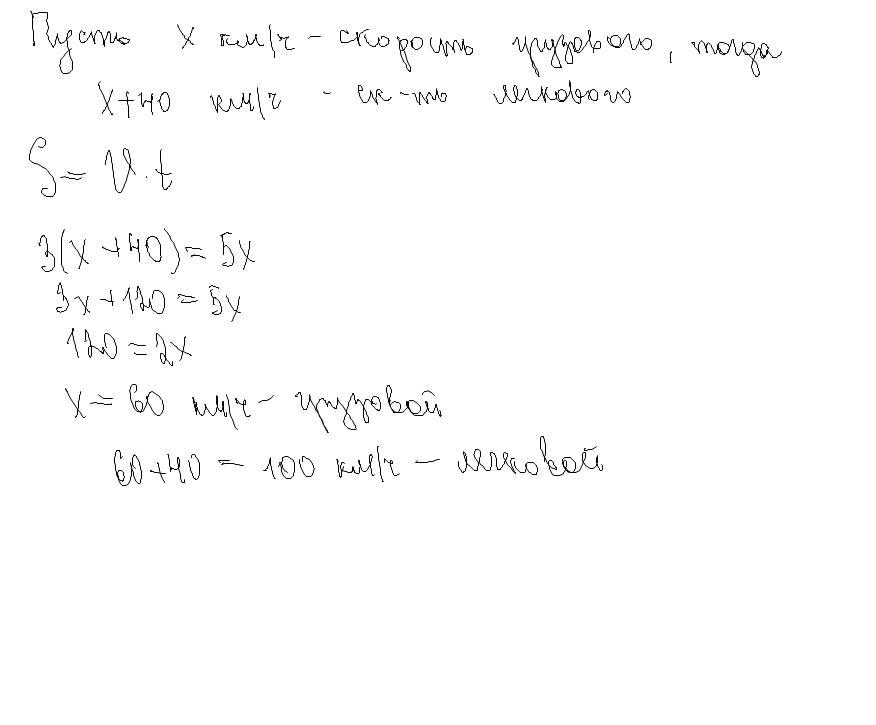 Пусть x км/ч - скорость грузового, тогда
x+40 км/ч - ск-ть легкового
S = V · t
3(x + 40) = 5x
3x + 120 = 5x
120 = 2x
x = 60 км/ч - грузовой
60 + 40 = 100 км/ч - легковой